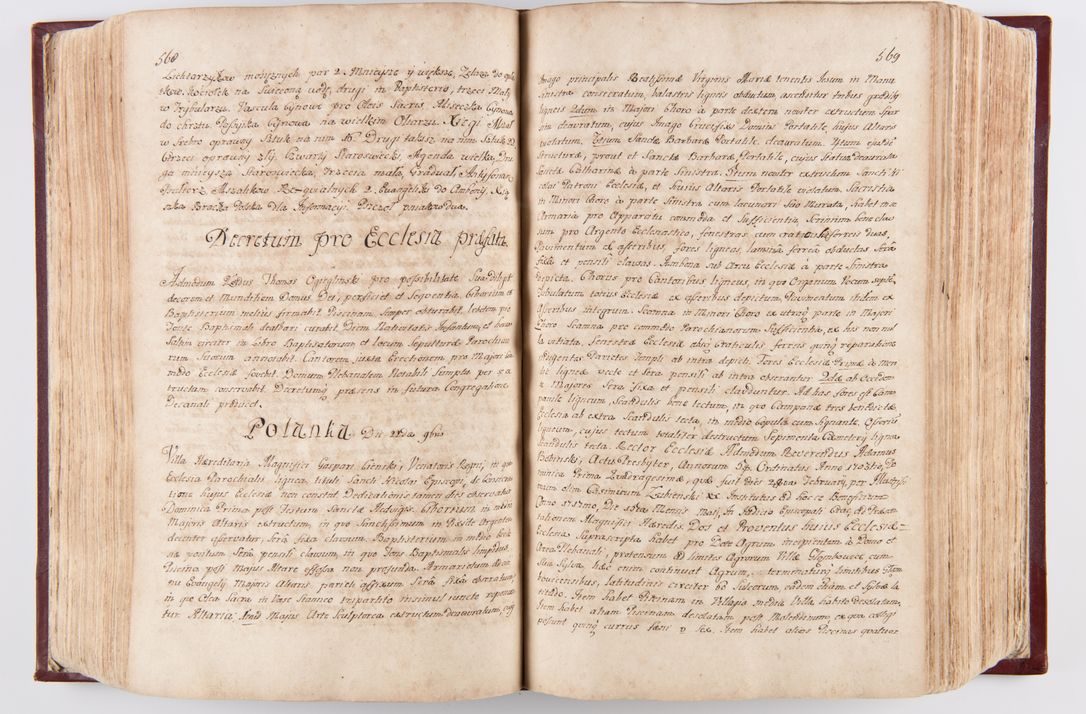 568
Lichtarzykow mosięznych par 2. Mnieysze y większe, Zelazo do opła
tkow. Kociołek na Swięconą wodę, drugi in Baptisterio, trzeci Mały
w Trybularzu. Vascula Cynowe pro Oleis Sacris. Miseczka Cynowa
do chrztu. Passyika Cynowa na wielkim Ołtarzu. Xięgi Mszał
w Srebro oprawny Sztuk na nim Drugi także na nim Sztuk
trzeci oprawny zły. Czwarty Staroswiecki, Agenda wielka, Dru
ga mnieysza Staroswiecka, trzecia mała, Graduał, Antyfonarz
Psałterz, Mszalikow Requialnych 2. Evangeliki do Ambony, Xią
szka Bracka Polska dla Informacyi. Pszczoł pniakow dwa.
Decretum pro Ecclesia præfata.
Admodum Rndus Thomas Ogieglinski pro possibilitate Sua diliget
decorem et Munditiem Domus Dei, perficiet et Sequentia. Ciborium et
Baptisterium melius firmabit Piscinam semper obturabit, lebetem pro
Fonte Baptismali dealbari curabit. Diem Nativitatis Infantium, et horam
Saltim circiter in Libro Baptisatorum et locum Sepulturæ Parochia
rum Suorum annotabit. Cantorem juxta Erectionem pro Majori co
modo Ecclesiæ fovebit. Domum Plebanalem Notabili Sumptu per se ex
tructam conservabit. Decretumq præsens in futura Congregatione
Decanali producet.
Polanka Die 22da 9bris
Villa Hæreditaria Magnifici Gaspari Cienski, Venatoris Regni, in qua
Ecclesia Parochialis lignea tituli Sancti Nicolai Episcopi, de Consecra
tione hujus Ecclesiæ non constat Dedicationis tamen dies observatur
Dominica Prima post Festum Sanctæ Hedvigis. Ciborium in medio
Majoris Altaris extructum, in quo Sanctissimum in Pixide Argentea
decenter asservatur, Serâ fixâ clausum. Baptisterium in medio Eccle
siæ positum Serâ pensili clausum, in quo Fons Baptismalis limpidus,
Piscina post Majus Altare effossa non profunda. Armariolum à cor
nu Evangelij Majoris Altaris, parieti affixum Serâ fixâ obseratum
in quo Olea Sacra in Vase Stanneo tripartito insimul juncto reponun
tur. Altaria 1mū Majus Arte Sculptorea exstructum Deauratum, cujus
569
Imago principalis Beatissimæ Virginis Mariæ tenentis Jesum in Manu
sinistra consecratum, balastris ligneis obductum, ascenditur tribus gradibus
ligneis 2dum in Majori Choro à parte dextera noviter extructum Spar
sim deauratum, cujus Imago Crucifixi Domini Portatile hujus Altaris
violatum. 3tium Sanctæ Barbaræ Portatile, deauratum. 4tum ejusdē
Structuræ, prout et Sanctæ Barbaræ, Portatile, cujus Statua Deaurata
Sanctæ Catharinæ à parte Sinistra. 5tum noviter extructum Sancti Ni
colai Patroni Ecclesiæ, et hujus Altaris Portatile violatum. Sacristia
in Minori Choro à parte Sinistra cum lacunari Sūo Murata, habet in se
Armaria pro Apparatu commoda et Sufficientia, Scrinium bene clau
sum pro Argento Ecclesiastico, fenestras cum craticulis ferreis duas,
Pavimentum ex asseribus, fores ligneas, laminâ ferreâ obductas Serâ
fixâ et pensili clausas. Ambona Sub Arcu Ecclesiæ à parte Sinistra
depicta. Chorus pro Cantoribus ligneus, in quo Organum Vocum septē,
Tabulatum totius Ecclesiæ ex asseribus depictum, Pavimentum itidem ex
Asseribus integrum. Scamna in Minori Choro ex utraq parte in Majori
Choro Scamna pro commodo Parochianorum Sufficientia, ex his non nul
la vitiata, Fenestræ Ecclesiæ absq Craticulis ferreis quinq reparatione
indigentes Parietes Templi ab intra depicti. Fores Ecclesiæ Primæ à Meri
die ligneæ vecte et Serâ pensili ab intra obserantur 2dæ ab Occiden
te Majores Serâ fixâ et pensili clauduntur. Ad has fores est Cam
panile ligneum, Scandulis bene tectum, in quo Campanæ tres benedictæ
Ecclesia ab extra Scandulis tecta, in medio Copula cum Signante, Ossariū
ligneum, cujus tectum totaliter destructum Sepimenta Cæmeterij lignea
Scandulis tecta. Rector Ecclesiæ Admodum Reverendus Adamus
Bobinski, Actu Presbyter, Annorum Ordinatus Anno Do
minica Prima Quadragesimæ, quæ fuit dies 28va February, per Illustrissi
mum olim Casimirum Łubienski Institutus Ad hocce Beneficium
Anno 1717mo, Die 10ma Mensis Maii, in Judicio Episcopali Crac, ad Præsen
tationem Magnificæ Hæredis. Dos et Proventus huius Ecclesiæ=
Ecclesia Suprascripta habet pro Dote Agrum incipientem à Domo et
Area Plebanali, protensum ad limites Agrorum Villæ Głembowce, cum
Sua Sylva, hac enim continuat Agrum, terminaturq limitibus Głem
boucensibus, latitudinis circiter 80 Sulcorum, eadem etiam et Sylvæ la
titudo. Item habet Piscinam in Villagio mediæ Villæ habito desolatam,
Item habet aliam Piscinam desolatam post Molendinum, ex qua colligi
possunt quinq currus fæni v Sex. Item habet alias Piscinas quatuor